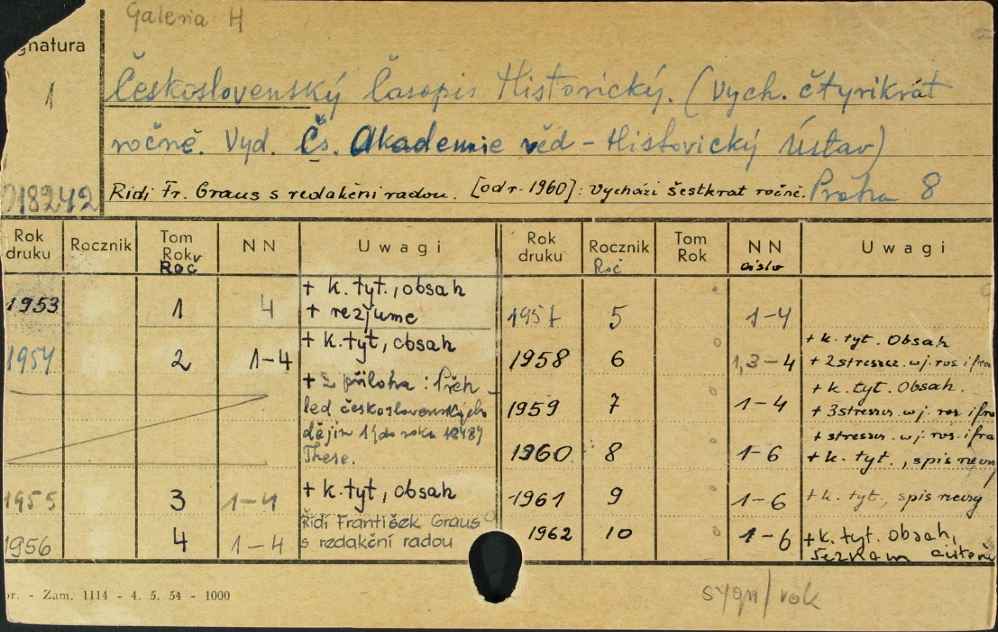 Galeria H
gnatura
1
Československý Časopis Historický. (Vych. čtyrikrát
ročně. Vyd. Čs. Akademie věd - Historický Ústav)
18242 Řídí Fr. Graus s redakční radou. [od r. 1960]: Vychází šestkrát ročně. Praha 8
Rok druku Rocznik Tom Rok Roč NN Uwagi Rok druku Rocznik Roč Tom Rok NN číslo Uwagi
1953 1 4 + k. tyt., obsah
+ rezjume
1954 2 1-4 + k. tyt, obsah
+ 2 příloha: Přeh-
led československých
dějin
These.
1955 3 1-4 + k. tyt, obsah
1956 4 1-4 Řídí František Graus
s redakční radou
1957 5 1-4
1958 6 1,3-4 + k. tyt. Obsah
+ 2 streszcz. w j. ros. i fra
1959 7 1-4 + k. tyt. Obsah.
+ 3 streszcz. w j. ros i fra
1960 8 1-6 + streszcz. w j. ros. i fra
+ k. tyt., spis
1961 9 1-6 + k. tyt., spis
1962 10 1-6 + k. tyt. obsah,
or. - Zam. 1114 - 4. 5. 54 - 1000
sygn/rok